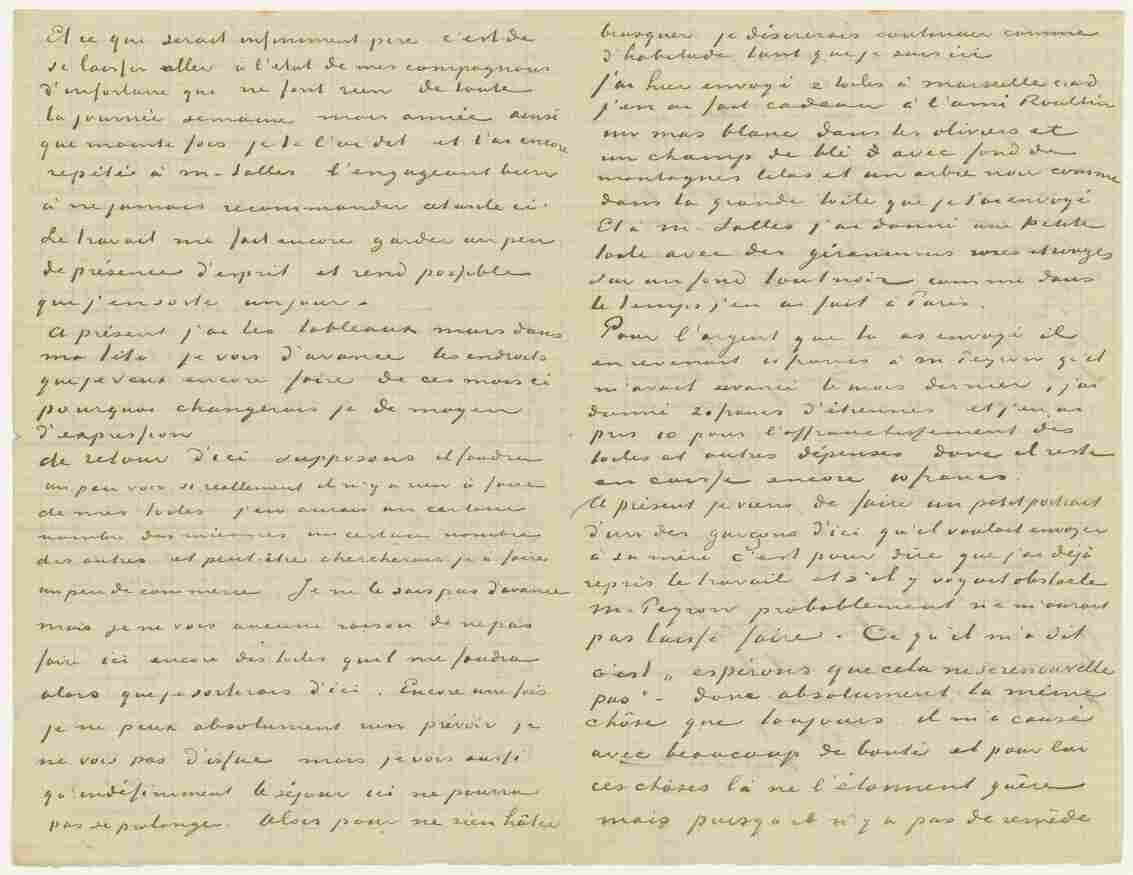 Et ce que serait infiniment pire c'est de
se laisser aller à l'état de mes compagnons
d'infortune qui ne font rien de toute
la journée semaine mois année ainsi
que mainte fois je te l'ai dit et l'ai encore
repété à M. Salles l'engageant bien
à ne jamais recommander cet asile ci.
Le travail me fait encore garder un peu
de présence d'esprit et rend possible
que j'en sorte un jour.
A présent j'ai les tableaux murs dans
ma tête je vois d'avance les endroits
que je veux encore faire de ces mois ci
pourquoi changerais je de moyen
d'expression
de retour d'ici supposons il faudra
un peu voir si reellement il n'y a rien à faire
de mes toiles j'en aurais un certain
nombre des miennes un certain nombre
des autres et peut-être chercherais je à faire
un peu de commerce Je ne le sais pas d'avance
mais je ne vois aucune raison de ne pas
faire ici encore des toiles qu'il me faudra
alors que je sortirais d'ici. Encore une fois
je ne peux absolument rien prévoir je
ne vois pas d'issue mais je vois aussi
qu'indéfiniment le séjour ici ne pourra
pas se prolonger. Alors pour ne rien hâter
brusquer je désirerais continuer comme
d'habitude tant que je suis ici
J'ai hier envoyé 2 toiles à Marseille c.à.d
j'en ai fait cadeau à l'ami Roullin
un mas blanc dans les oliviers et
un champ de blé avec fond de
montagnes lilas et un arbre noir comme
dans la grande toile que je t'ai envoyé
Et à M. Salles j'ai donné une petite
toile avec des géraniums roses et rouges
sur un fond tout noir comme dans
le temps j'en ai fait à Paris.
Pour l'argent que tu as envoyé il
en revenait 10 francs à M. Peyron qu'il
m'avait avancé le mois dernier, j'ai
donné 20 francs d'étrennes et j'en ai
pris 10 pour l'affranchissement des
toiles et autres dépenses donc il reste
en caisse encore 10 francs.
A présent je viens de faire un petit portrait
d'un des garçons d'ici qu'il voulait envoyer
à sa mère c'est pour dire que j'ai déjà
repris le travail et s'il y voyait obstacle
M. Peyron probablement ne m'aurait
pas laissé faire. Ce qu'il m'a dit
c'est „espérons que cela ne se renouvelle
pas" – donc absolument la même
chôse que toujours il m'a causé
avec beaucoup de bonté et pour lui
ces chôses là ne l'étonnent guère
mais puisqu'il n'y a pas de remède